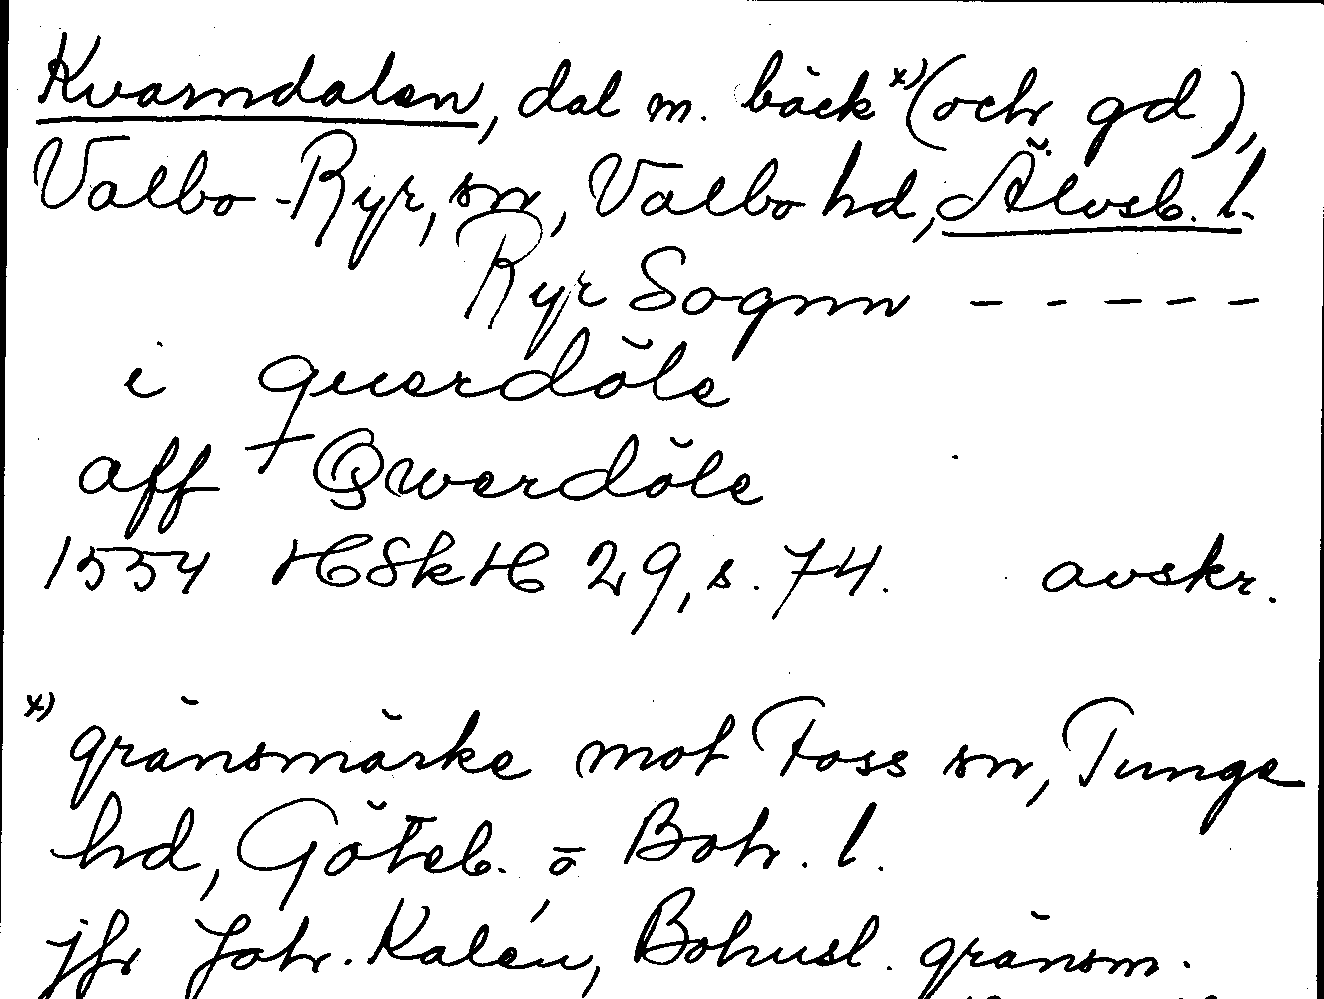 Kvarndalen, dal m. bäck x) (och gd),
Valbo-Ryr, sn, Valbo hd, Älvsb. l.
Ryr Sognn - - - - -
i querdöle
aff Qwerdöle
1554 HSkH 29, s. 74. avskr.
x) gränsmärke mot Foss sn, Tunge
hd, Göteb. o Boh. l.
jfr Joh. Kalén, Bohusl. gränsm.